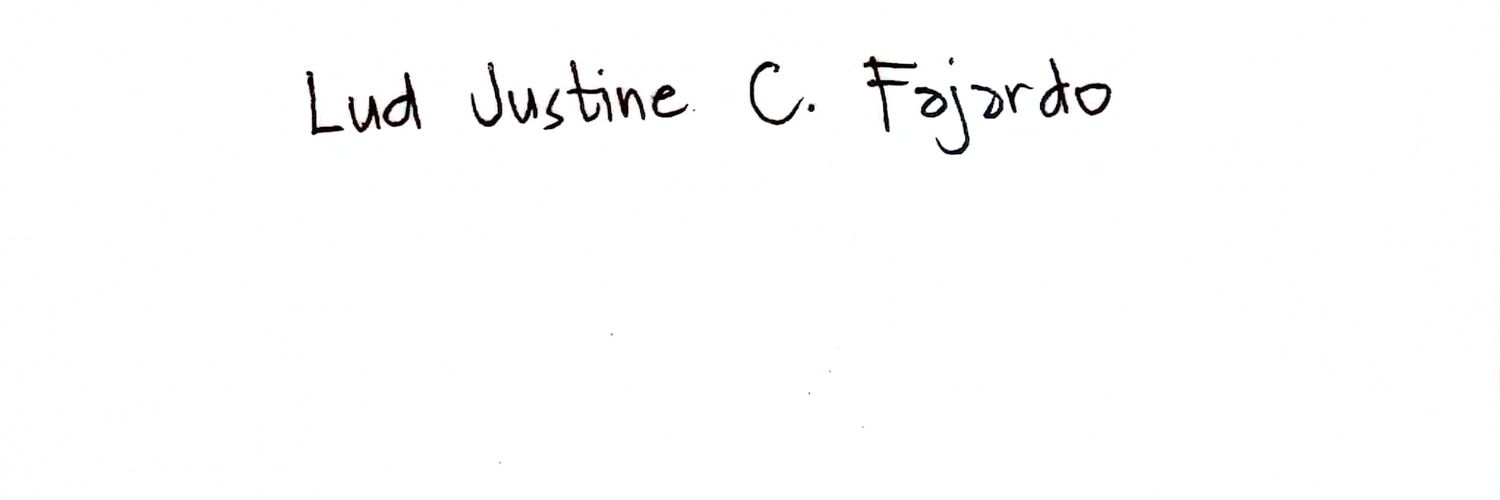 Lud Justine C. Fajardo